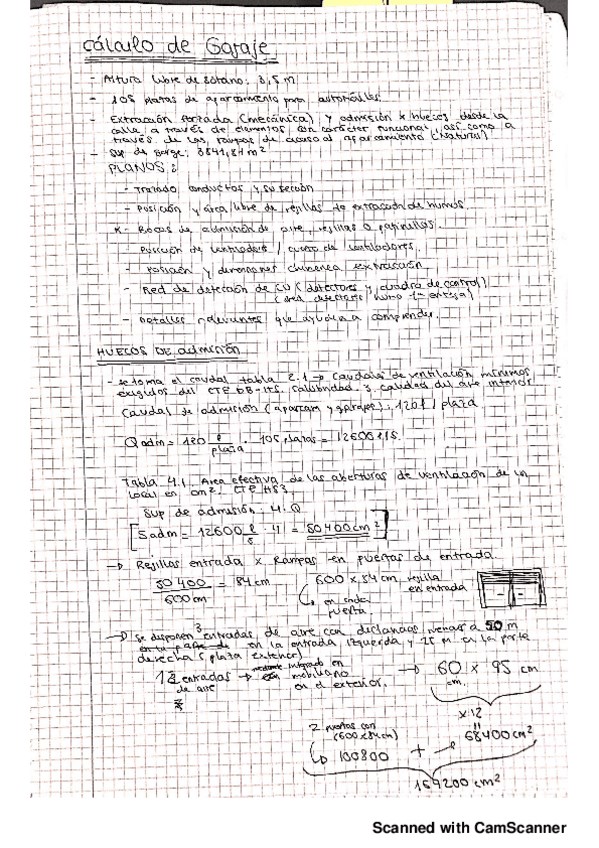 Cálculo de Garaje
- Altura libre de sótano: 3,5 m
- 105 plazas de aparcamiento para automóviles.
- Extracción forzada (mecánica) y admisión x huecos desde la
calle a través de elementos con carácter funcional, así como a
través de las rampas de acceso al aparcamiento (Natural)
- Sup de garaje: 3841,84 m²
PLANOS:
- Trazado conductos y su sección
- Posición y área libre de rejillas de extracción de humos.
- Bocas de admisión de aire, rejillas o patinillos.
Posición de ventiladores / cuarto de ventiladores.
- Posición y dimensiones chimenea extracción
- Red de detección de CO (detectores y cuadro de control)
(red detectores humo
- Detalles relevantes que ayuden a comprender.
HUECOS DE admisión
- se toma el caudal tabla 2.1 → Caudales de ventilación mínimos
exigidos del CTE DB-HS. Salubridad 3 calidad del aire interior
Caudal de admisión (aparcam y garajes): 120 l / plaza
Qadm = 120 l/plaza · 105 plazas = 12600 l/s.
Tabla 4.1 Area efectiva de las aberturas de ventilación de un
local en cm². CTE HS3,
Sup de admisión 4·Q
Sadm = 12600 l/s · 4 = 50400 cm²
→ Rejillas entrada x Rampas en puertas de entrada.
50 400 / 600 cm = 84 cm
600 x 84 cm rejilla
en entrada
en cada
puerta.
→ se disponen entradas de aire con distancias menor a 50 m
en la entrada izquierda y 25 m en la parte
derecha (plaza exterior)
12 entradas → mediante integrado en
de aire
mobiliario
en el exterior.
→ 60 x 95 cm
cm.
x 12
=
68400 cm²
2 puertas con
(600x84cm)
100800 +
169200 cm²
Scanned with CamScanner